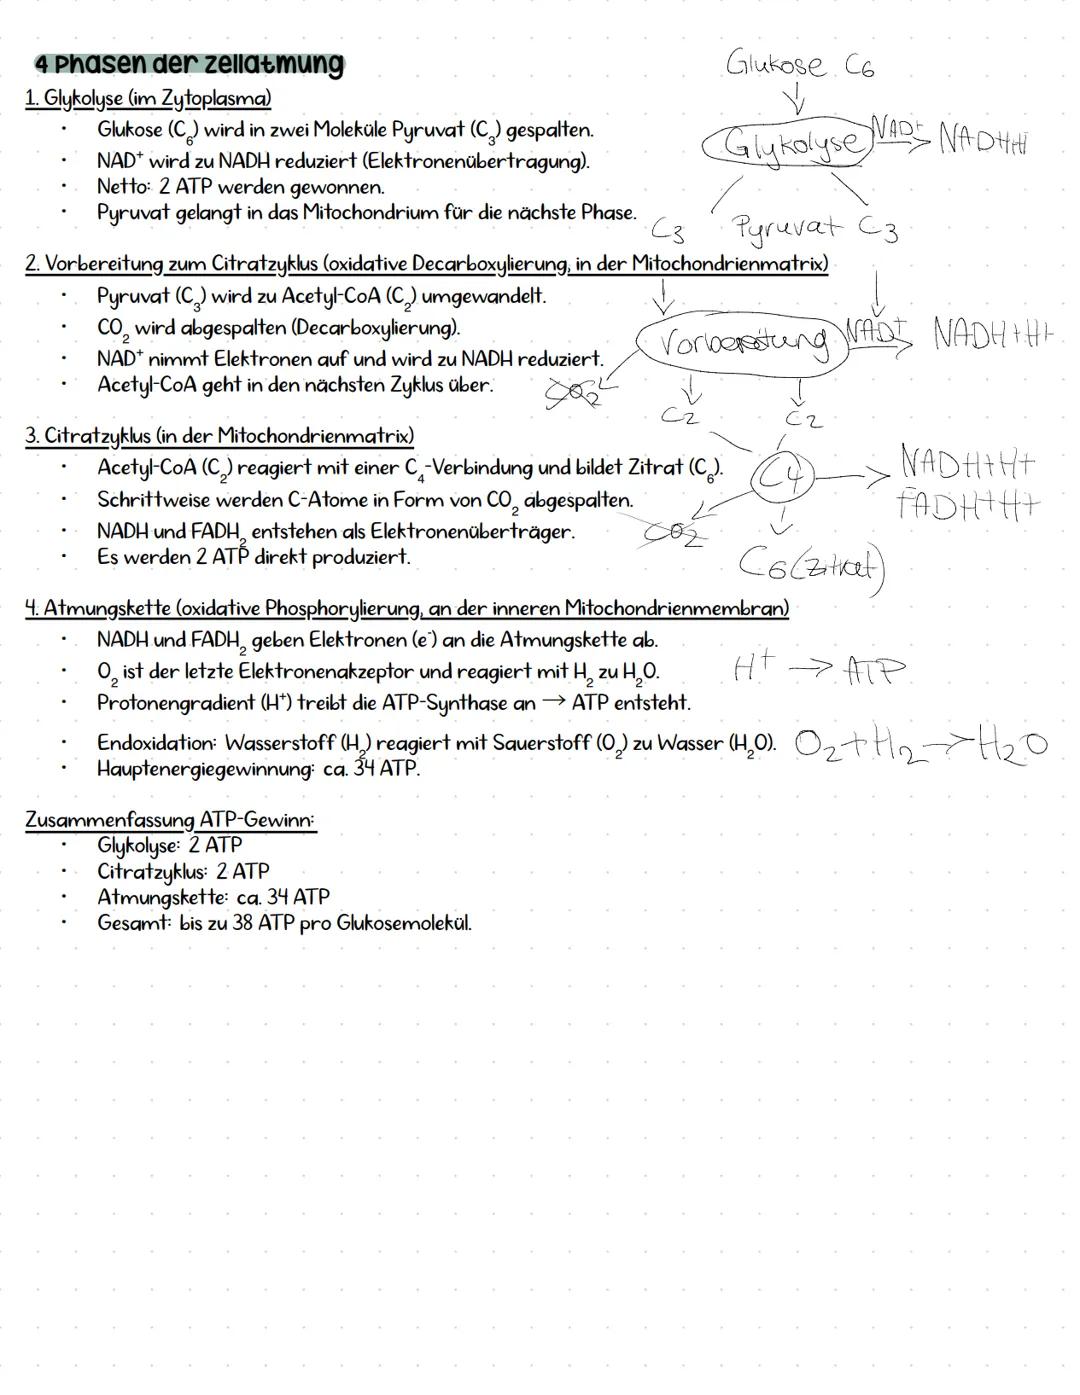 4 Phasen der Zellatmung
Glukose C6
1. Glykolyse (im Zytoplasma)
• Glukose (C₆) wird in zwei Moleküle Pyruvat (C₃) gespalten.
Glykolyse NAD+ → NADHH
• NAD⁺ wird zu NADH reduziert (Elektronenübertragung).
• Netto: 2 ATP werden gewonnen.
• Pyruvat gelangt in das Mitochondrium für die nächste Phase.
C3 Pyruvat C3
2. Vorbereitung zum Citratzyklus (oxidative Decarboxylierung, in der Mitochondrienmatrix)
• Pyruvat (C₃) wird zu Acetyl-CoA (C₂) umgewandelt.
• CO₂ wird abgespalten (Decarboxylierung).
Vorbereitung NAD+ → NADH+H+
• NAD⁺ nimmt Elektronen auf und wird zu NADH reduziert.
• Acetyl-CoA geht in den nächsten Zyklus über.
CO2
C2 C2
3. Citratzyklus (in der Mitochondrienmatrix)
• Acetyl-CoA (C₂) reagiert mit einer C₄-Verbindung und bildet Zitrat (C₆).
C4 → NADH+H+
FADH+H+
• Schrittweise werden C-Atome in Form von CO₂ abgespalten.
• NADH und FADH₂ entstehen als Elektronenüberträger.
CO2
• Es werden 2 ATP direkt produziert.
C6 (Zitrat)
4. Atmungskette (oxidative Phosphorylierung, an der inneren Mitochondrienmembran)
• NADH und FADH₂ geben Elektronen (e⁻) an die Atmungskette ab.
• O₂ ist der letzte Elektronenakzeptor und reagiert mit H₂ zu H₂O.
H+ → ATP
• Protonengradient (H⁺) treibt die ATP-Synthase an → ATP entsteht.
• Endoxidation: Wasserstoff (H₂) reagiert mit Sauerstoff (O₂) zu Wasser (H₂O).
O2+H2→H2O
• Hauptenergiegewinnung: ca. 34 ATP.
Zusammenfassung ATP-Gewinn:
• Glykolyse: 2 ATP
• Citratzyklus: 2 ATP
• Atmungskette: ca. 34 ATP
• Gesamt: bis zu 38 ATP pro Glukosemolekül.